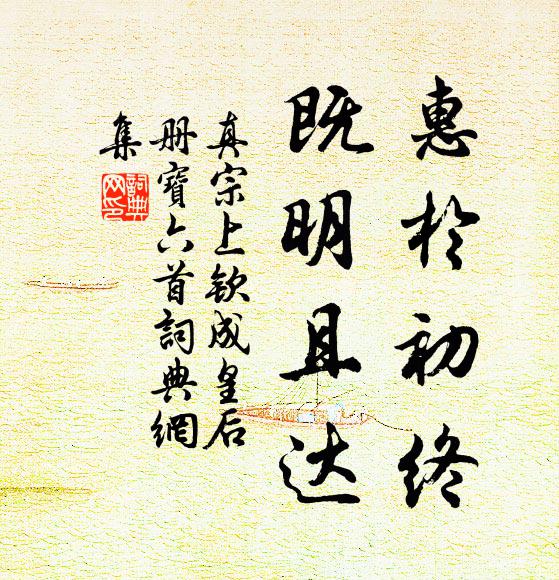 惠於初终
既明且达
真宗上钦成皇后
册寶六首詞典網
集
詞典
网印